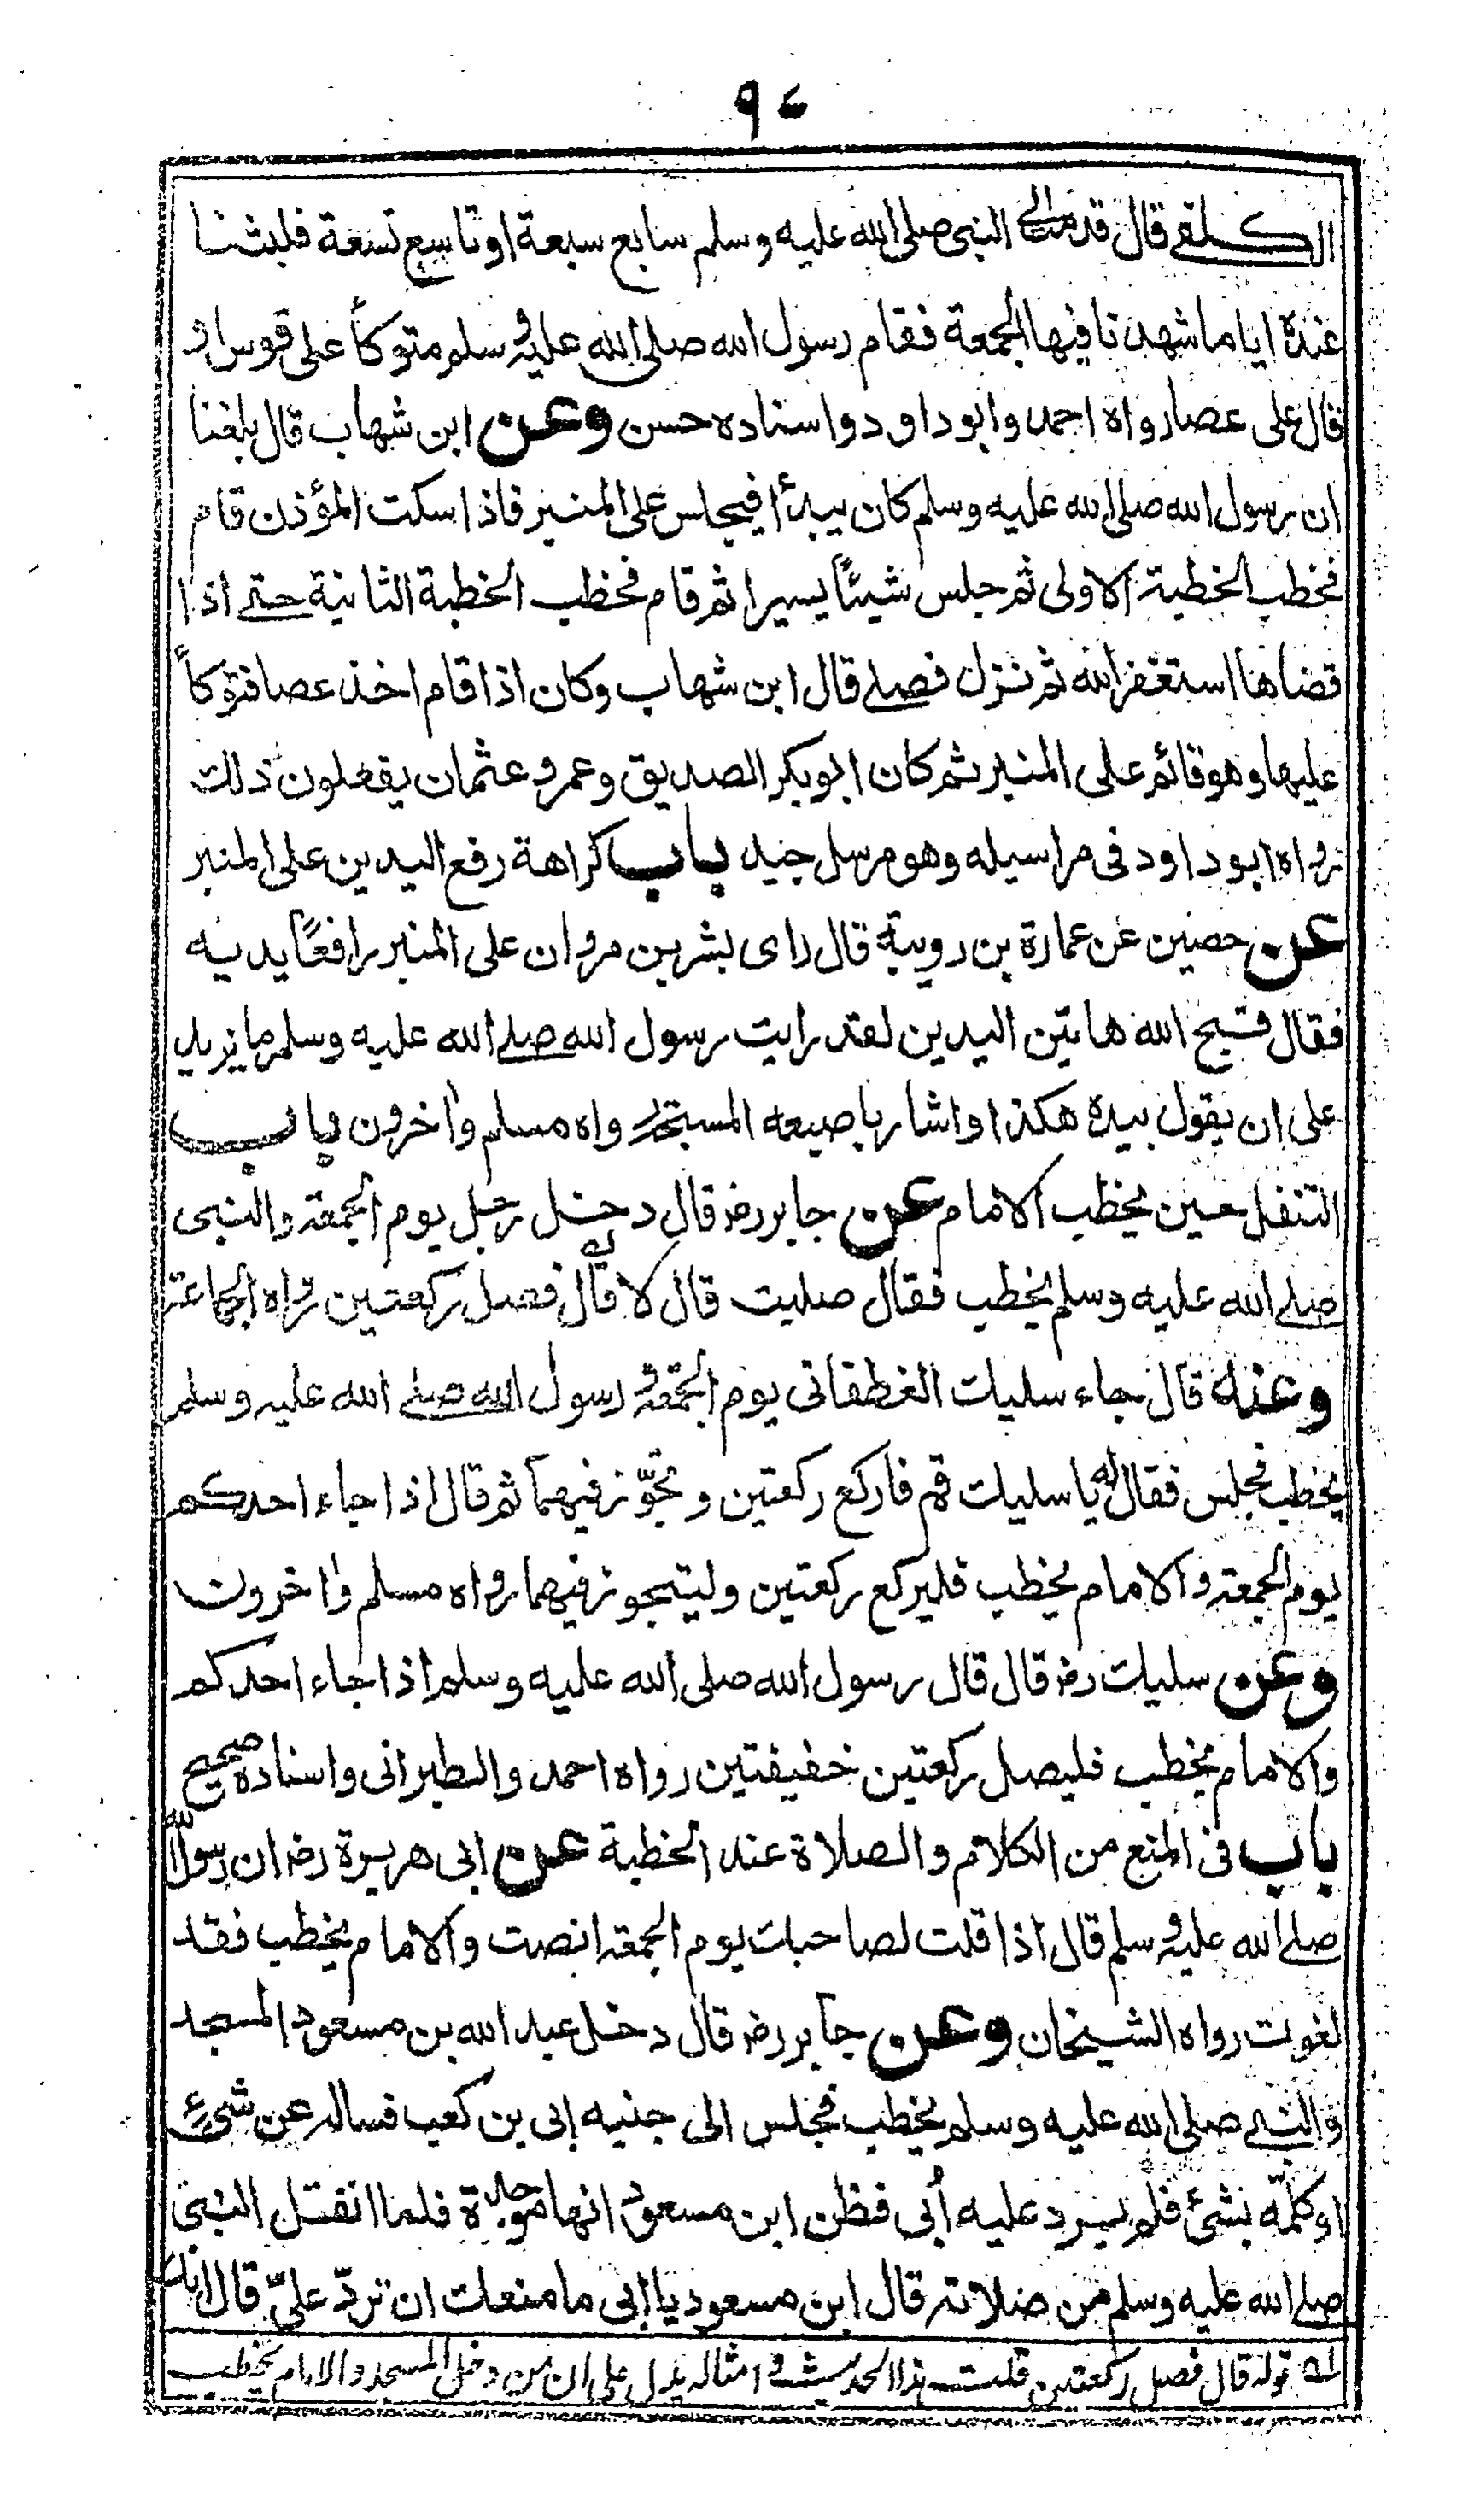 ٩٤
الكلفى قال قدمت الى النبى صلى الله عليه وسلم سابع سبعة او تاسع تسعة فلبثنا
عنده اياما شهدنا فيها الجمعة فقام رسول الله صلى الله عليه وسلم متوكأ على قوس او
قال على عصا رواه احمد وابو داود واسناده حسن وعن ابن شهاب قال بلغنا
ان رسول الله صلى الله عليه وسلم كان يبدأ فيجلس على المنبر فاذا سكت المؤذن قام
فخطب الخطبة الاولى ثم جلس شيئاً يسيرا ثم قام فخطب الخطبة الثانية حتى اذا
قضاها استغفر الله ثم نزل فصلى قال ابن شهاب وكان اذا قام اخذ عصا فتوكأ
عليها وهو قائم على المنبر ثم كان ابو بكر الصديق وعمر وعثمان يفعلون ذلك
رواه ابو داود فى مراسيله وهو مرسل جيد باب كراهة رفع اليدين على المنبر
عن حصين عن عمارة بن روبية قال راى بشر بن مروان على المنبر رافعًا يديه
فقال قبح الله هاتين اليدين لقد رايت رسول الله صلى الله عليه وسلم ما يزيد
على ان يقول بيده هكذا واشار باصبعه المسبحة رواه مسلم واخرون باب
التنفل حين يخطب الامام عن جابر رضـ قال دخل رجل يوم الجمعة والنبى
صلى الله عليه وسلم يخطب فقال صليت قال لا قال له فصل ركعتين رواه الجماعة
وعنه قال جاء سليك الغطفانى يوم الجمعة ورسول الله صلى الله عليه وسلم
يخطب فجلس فقال له يا سليك قم فاركع ركعتين وتجوّز فيهما ثم قال اذا جاء احدكم
يوم الجمعة والامام يخطب فليركع ركعتين وليتجوز فيهما رواه مسلم واخرون
وعن سليك رضـ قال قال رسول الله صلى الله عليه وسلم اذا جاء احدكم
والامام يخطب فليصل ركعتين خفيفتين رواه احمد والطبرانى واسناده صحيح
باب فى المنع من الكلام والصلاة عند الخطبة عن ابى هريرة رضـ ان رسول الله
صلى الله عليه وسلم قال اذا قلت لصاحبك يوم الجمعة انصت والامام يخطب فقد
لغوت رواه الشيخان وعن جابر رضـ قال دخل عبد الله بن مسعود المسجد
والنبى صلى الله عليه وسلم يخطب فجلس الى جنبه ابى بن كعب فساله عن شئ
او كلّمه بشئ فلم يرد عليه أبى فظن ابن مسعود انها موجدة فلما انفتل النبى
صلى الله عليه وسلم من صلاته قال ابن مسعود يا ابى ما منعك ان تردّ علىّ قال انك
له قوله قال فصل ركعتين قلت هذا الحديث و امثاله يدل على ان من دخل المسجد والامام يخطب